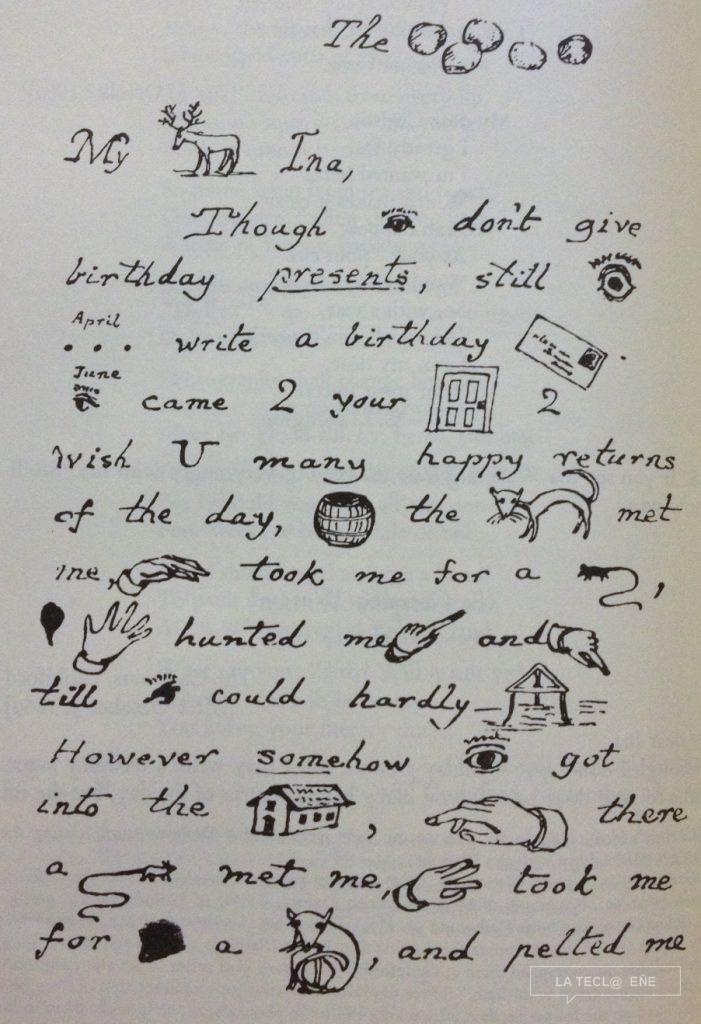 The
My Ina,
Though don't give
birthday presents, still
April
write a birthday .
June
came 2 your 2
wish U many happy returns
of the day, the met
me, took me for a ,
hunted me and
till could hardly
However somehow got
into the , there
a met me, took me
for a , and pelted me
LA TECL@ EÑE